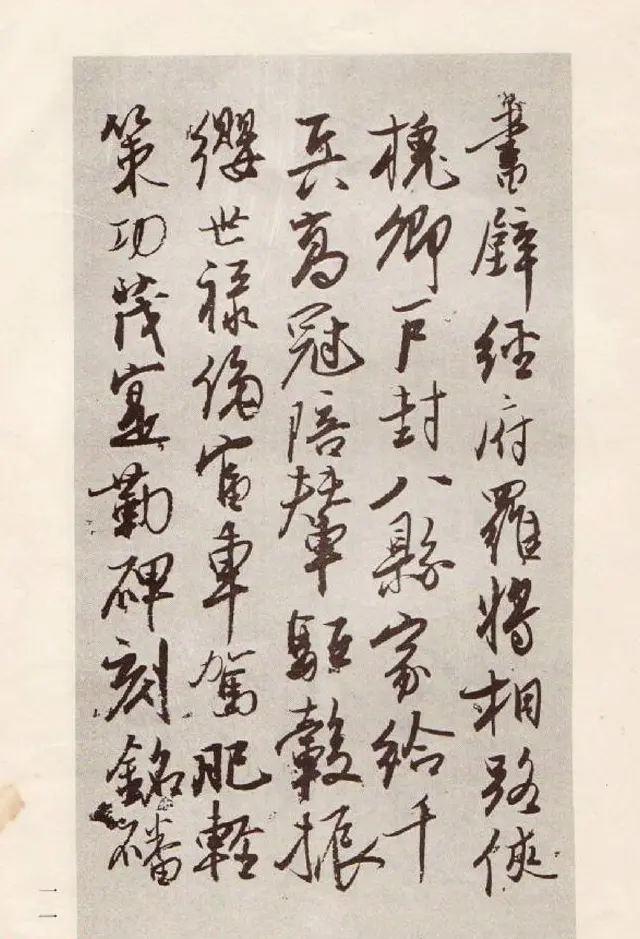 書鐘經府羅將相路俠
槐卿戶封八縣家給千
兵高冠陪輦驅轂振
纓世祿侈富車駕肥輕
策功茂寔勒碑刻銘磻
一一